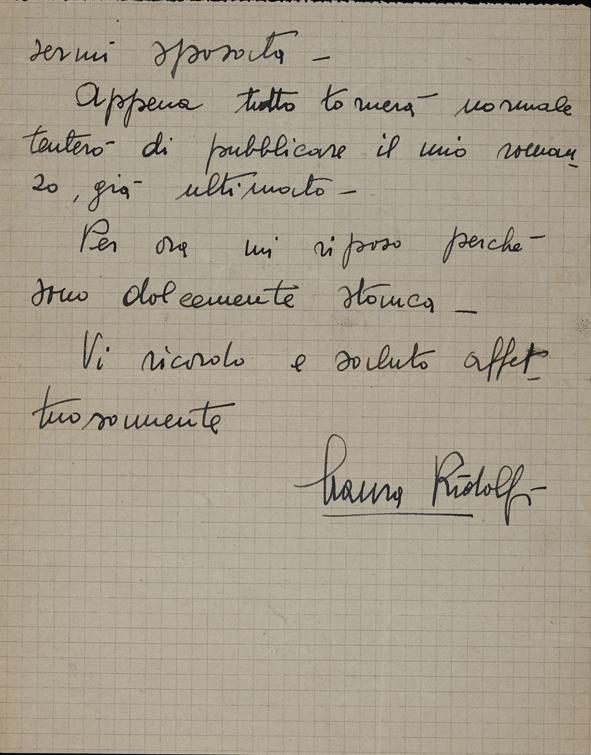 sermi sposata –
Appena tutto tornerà normale
tenterò di pubblicare il mio roman-
zo, già ultimato –
Per ora mi riposo perchè
sono dolcemente stanca –
Vi ricordo e saluto affet-
tuosamente
Laura Ridolfi